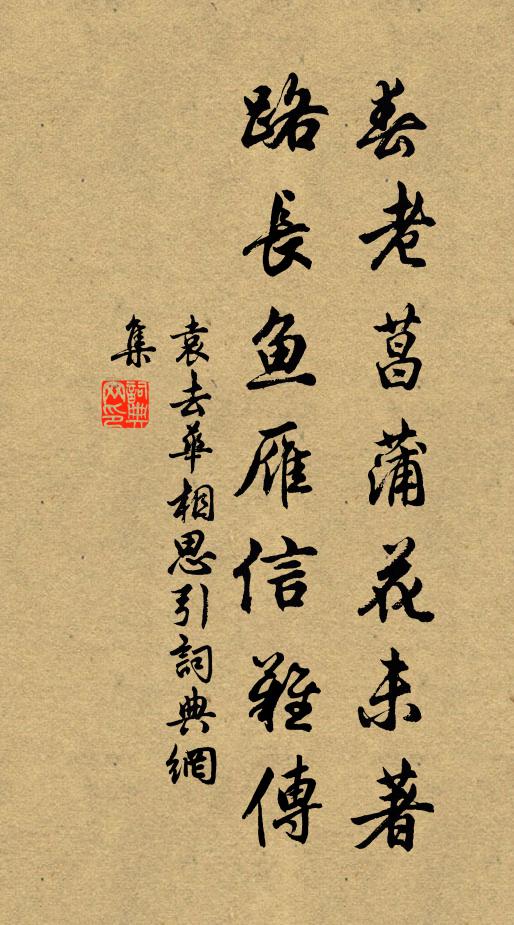 春老菖蒲花未著
路長鱼雁信難傳
袁去華相思引詞典網
集
詞典網印